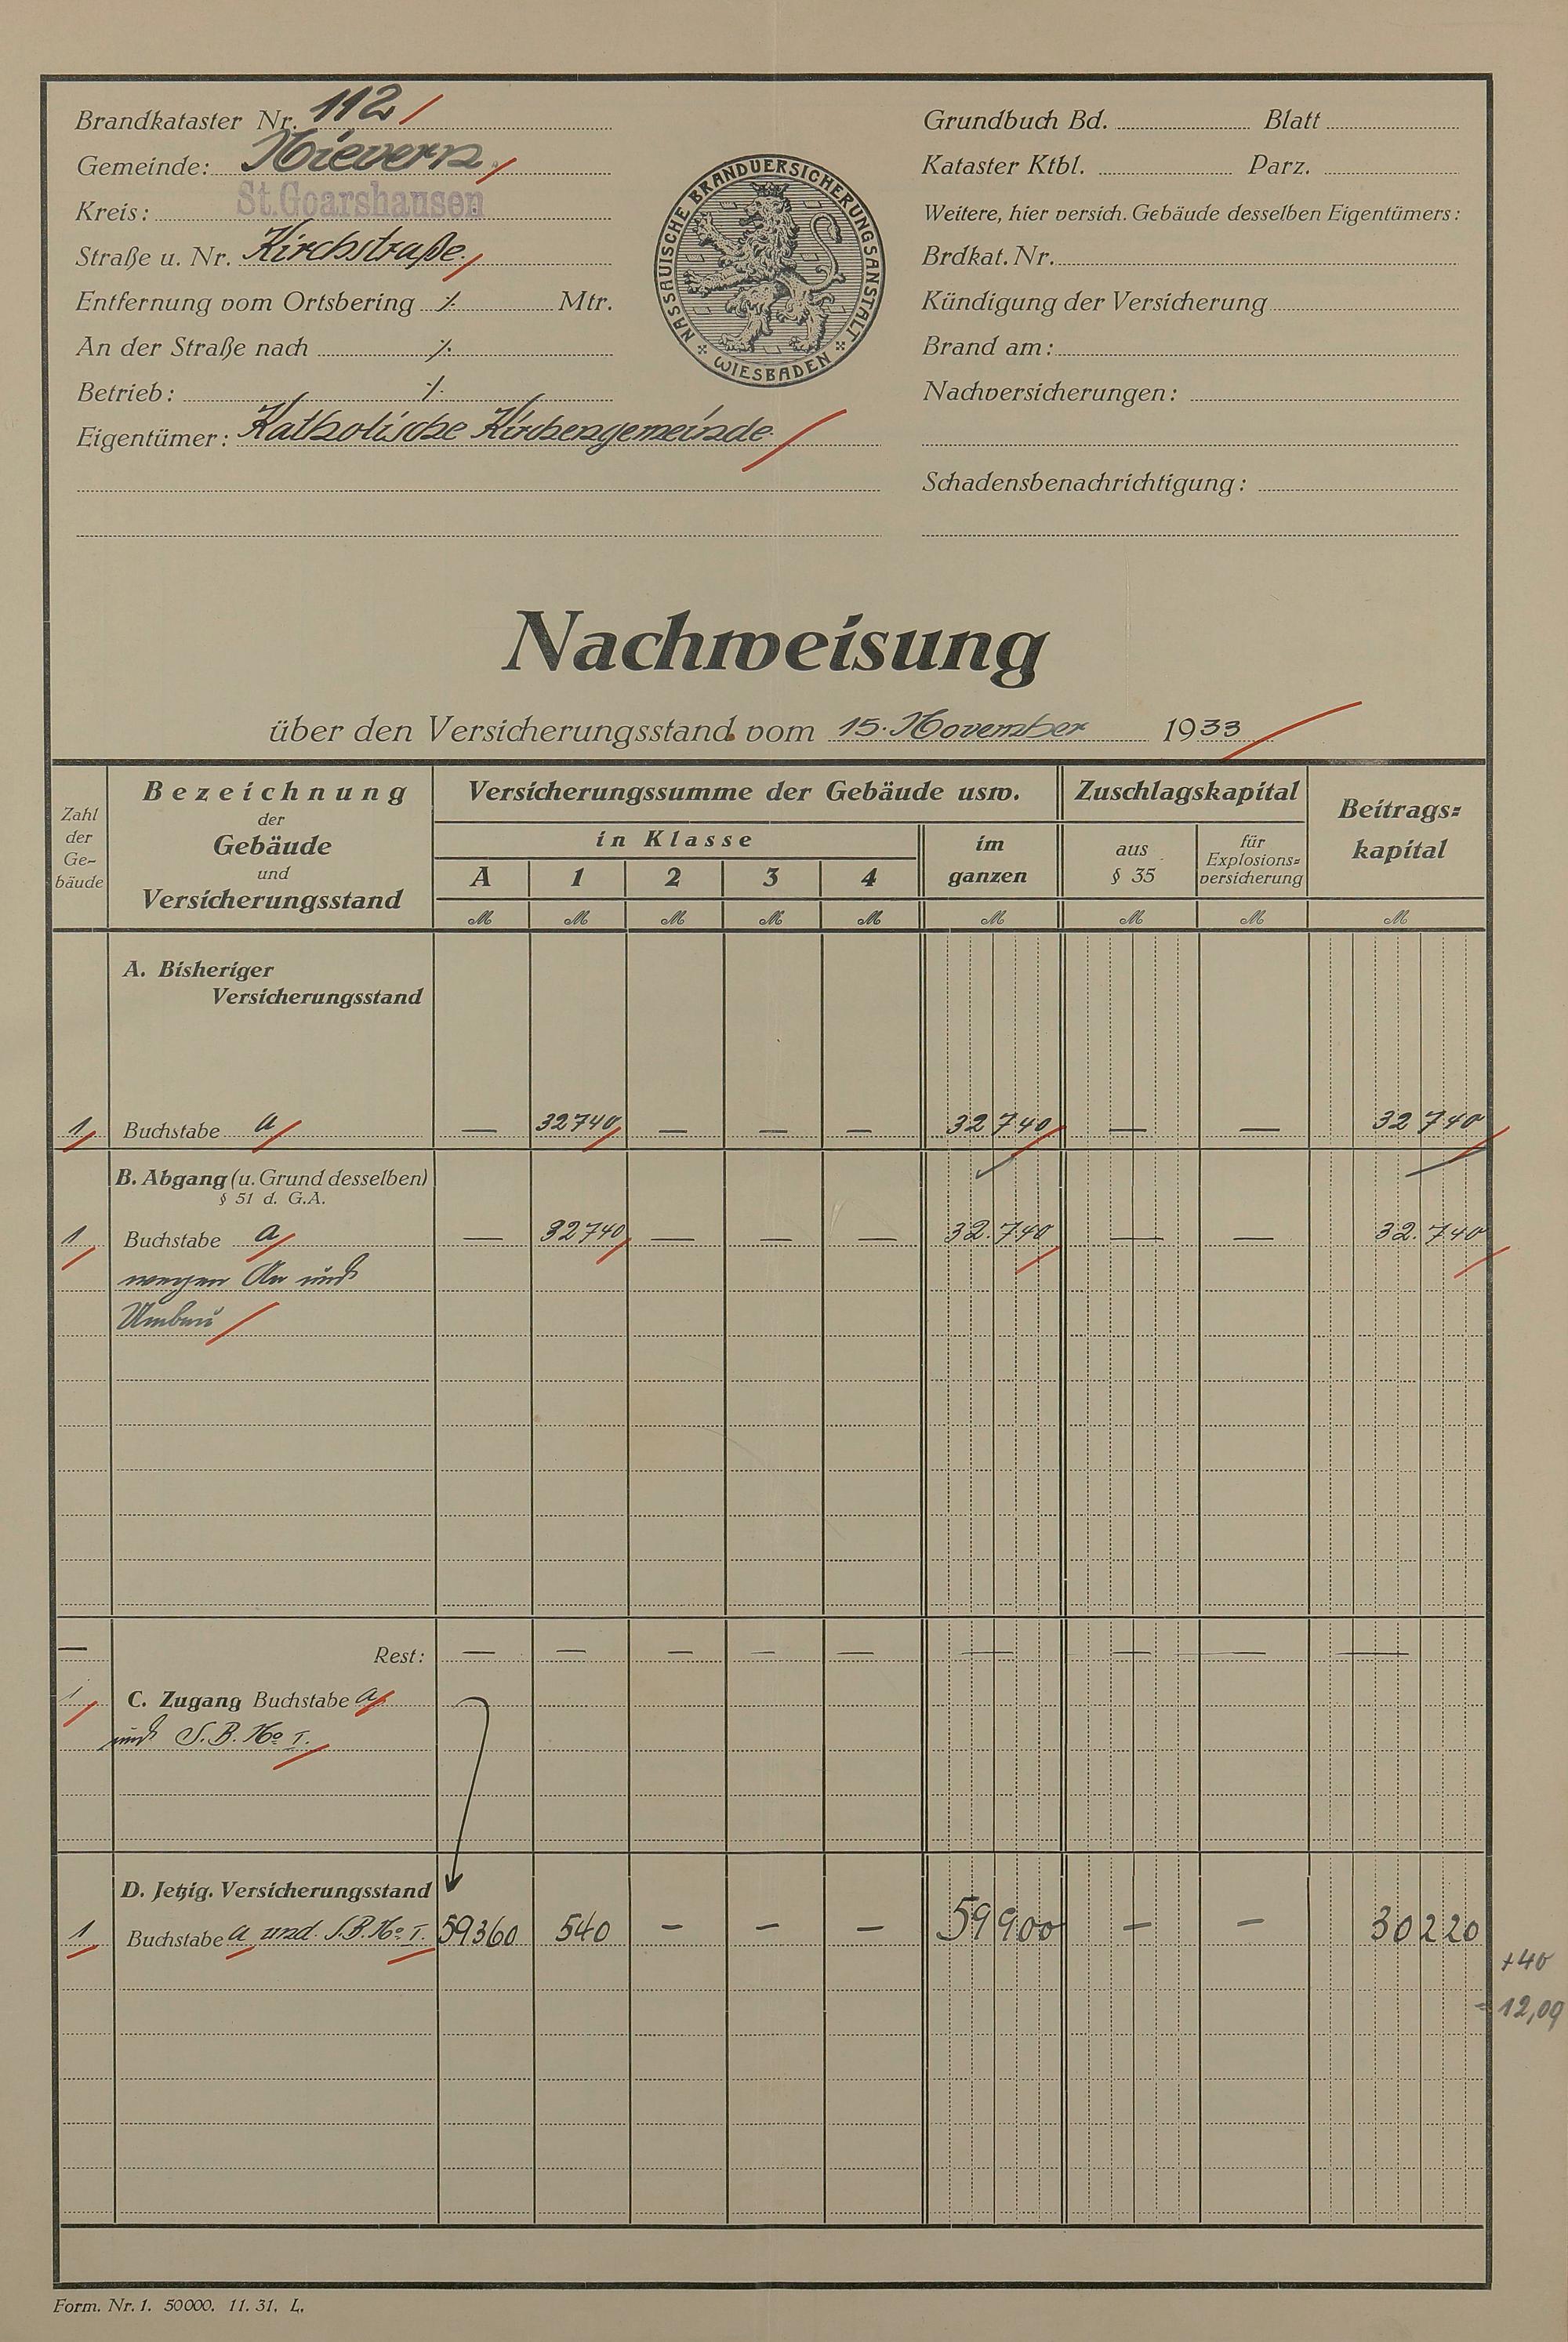 Brandkataster Nr. 112
Gemeinde: Nievern
Kreis: St.Goarshausen
Straße u. Nr. Kirchstraße.
Entfernung vom Ortsbering ./. Mtr.
An der Straße nach ./.
Betrieb: ./.
Eigentümer: Katholische Kirchengemeinde
NASSAUISCHE BRANDVERSICHERUNGSANSTALT
WIESBADEN
Grundbuch Bd. Blatt
Kataster Ktbl. Parz.
Weitere, hier versich. Gebäude desselben Eigentümers:
Brdkat. Nr.
Kündigung der Versicherung
Brand am:
Nachversicherungen:
Schadensbenachrichtigung:
Nachweisung
über den Versicherungsstand vom 15. November 1933
Zahl der Ge-bäude
Bezeichnung der Gebäude und Versicherungsstand
Versicherungssumme der Gebäude usw.
in Klasse
A 1 2 3 4
im ganzen
Zuschlagskapital
aus § 35
für Explosions=versicherung
Beitrags=kapital
M M M M M M M M M
A. Bisheriger
Versicherungsstand
1 Buchstabe a — 32740 — — — 32740 — — 32740
B. Abgang (u. Grund desselben)
§ 51 d. G.A.
1 Buchstabe a — 32740 — — — 32.740 — — 32.740
wegen An und
Umbau
— Rest: — — — — — — — — —
1 C. Zugang Buchstabe a
und S.B. No I.
D. Jetzig. Versicherungsstand
1 Buchstabe a und S.B. No I. 59360 540 — — — 59900 — — 30220
+40
= 12,09
Form. Nr. 1. 50000. 11. 31. L.